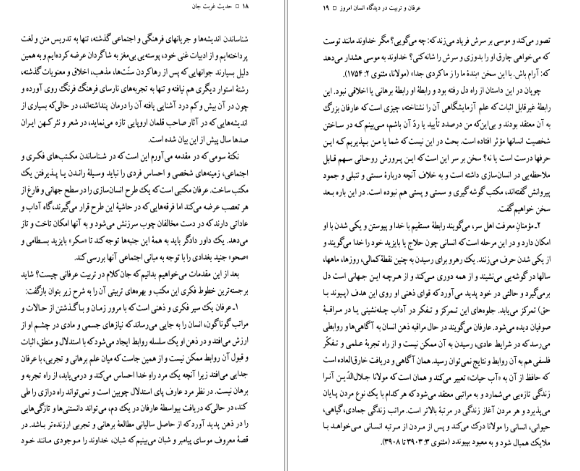 ۱۸ □ حدیث غربت جان
شناساندن اندیشه‌ها و جریانهای فرهنگی و اجتماعی گذشته، تنها به تدریس متن و لغت
پرداخته‌ایم و از ادبیات غنی خود، پوسته‌یی بی‌مغز به شاگردان عرضه کرده‌ایم و به همین
دلیل بسیارند جوانهایی که پس از رها کردن سنّت‌ها، مذهب، اخلاق و معنویات گذشته،
رشتهٔ استوار دیگری هم نیافته و تنها به تجربه‌های نارسای فرهنگ فرنگ روی آورده و
چون در آن بیش و کم درد آشنایی یافته آن را درمان پنداشته‌اند، در حالی‌که بسیاری از
اندیشه‌هایی که در آثار صاحب قلمان اروپایی تازه می‌نماید، در شعر و نثر کهن ایران
صدها سال پیش از این بیان شده است.
نکتهٔ سومی که در مقدمه می‌آورم این است که در شناساندن مکتب‌های فکری و
اجتماعی، زمینه‌های شخصی و احساس فردی را نباید وسیلهٔ راندن یا پذیرفتن یک
مکتب ساخت. عرفان مکتبی است که یک طرح انسان‌سازی را در سطح جهانی و فارغ از
هر تعصب عرضه می‌کند اما فرقه‌هایی که در حاشیهٔ این طرح قرار می‌گیرند، گاه آداب و
عاداتی دارند که در دست مخالفان چوب سرزنش می‌شود و به آنها امکان تاخت و تاز
می‌دهد. یک داور دادگر باید به همهٔ این جنبه‌ها توجه کند تا «سکر» بایزید بسطامی و
«صحو» جنید بغدادی را با توجه به مبانی اجتماعی آنها بررسی کند.
بعد از این مقدمات می‌خواهیم بدانیم که جان کلام در تربیت عرفانی چیست؟ شاید
برجسته‌ترین خطوط فکری این مکتب و بهره‌های تربیتی آن را به شرح زیر بتوان بازگفت:
۱ـ عرفان یک سیر فکری و ذهنی است که با مرور زمان و با گذشتن از حالات و
مراتب گوناگون، انسان را به جایی می‌رساند که نیازهای جسمی و مادی در چشم او از
ارزش می‌افتد و در ذهن او یک سلسله روابط ایجاد می‌شود که با استدلال و منطق، اثبات
و قبول آن روابط ممکن نیست و از همین جاست که میان علم برهانی و تجربی، با عرفان
جدایی می‌افتد زیرا آنچه یک مرد راهِ خدا احساس می‌کند و درمی‌یابد، از راه تجربه و
برهان نیست. در نظر مرد عارف پای استدلال چوبین است و نمی‌تواند راه درازی را طی
کند، در حالی‌که دریافت بی‌واسطهٔ عارفان در یک دم، می‌تواند دانستنی‌ها و تازگی‌هایی
را در ذهن پدید آورد که از حاصل سالیانی مطالعهٔ برهانی و تجربی ارزنده‌تر باشد. در
قصهٔ معروف موسای پیامبر و شبان می‌بینیم که شبان، خداوند را موجودی مانند خود
عرفان و تربیت در دیدگاه انسان امروز □ ۱۹
تصور می‌کند و موسی بر سرش فریاد می‌زند که: چه می‌گویی؟ مگر خداوند مانند توست
که می‌خواهی چارق او را بدوزی و سرش را شانه کنی؟ خداوند به موسی هشدار می‌دهد
که: آرام باش. با این سخن «بندهٔ ما را ز ما کردی جدا» (مولانا، مثنوی ۲: ۱۷۵۴).
چوپان در این داستان از راه دل رفته بود و رابطهٔ او رابطهٔ برهانی یا اخلاقی نبود. این
رابطهٔ غیرقابل اثبات که علم آزمایشگاهی آن را نشناخته، چیزی است که عارفان بزرگ
به آن معتقد بودند و بی‌این‌که من درصدد تأیید یا ردّ آن باشم، می‌بینم که در ساختن
شخصیت انسانها مؤثر افتاده است. بحث در این نیست که شما یا من بپذیریم که این
حرفها درست است یا نه؟ سخن بر سر این است که این پرورش روحانی سهم قابل
ملاحظه‌یی در انسان‌سازی داشته است و به خلاف آنچه دربارهٔ سستی و تنبلی و جمود
پیروانش گفته‌اند، مکتب گوشه‌گیری و سستی و پستی هم نبوده است. در این باره بعد
سخن خواهیم‌گفت.
۲ـ مؤمنان معرفت اهل سر، می‌گویند رابطهٔ مستقیم با خدا و پیوستن و یکی شدن با او
امکان دارد و در این مرحله است که انسانی چون حلاج یا بایزید خود را خدا می‌گویند و
از یکی شدن حرف می‌زنند. یک رهرو برای رسیدن به چنین نقطهٔ کمالی، روزها، ماهها،
سالها در گوشه‌یی می‌نشیند و از همه دوری می‌کند و از هرچه این جهانی است دل
برمی‌گیرد و حالتی در خود پدید می‌آورد که قوای ذهنی او روی این هدف (پیوند با
حق) تمرکز می‌یابد. جلوه‌های این تمرکز و تفکر در آداب چله‌نشینی یا در مراقبهٔ
صوفیان دیده می‌شود. عارفان می‌گویند در حال مراقبه ذهن انسان به آگاهی‌ها و روابطی
می‌رسد که در شرایط عادی، رسیدن به آن ممکن نیست و از راه تجربهٔ علمی و تفکّر
فلسفی هم به آن روابط و نتایج نمی‌توان رسید. همان آگاهی و دریافت خارق‌العاده است
که حافظ از آن به «آب حیات» تعبیر می‌کند و همان است که مولانا جلال‌الدّین آن‌را
زندگی تازه‌یی می‌شمارد و به مراتبی معتقد می‌شود که هر کدام با یک نوع مردن پایان
می‌پذیرد و هر مردن آغاز زندگی در مرتبهٔ بالاتر است. مراتب زندگی جمادی، گیاهی،
حیوانی، انسانی را مولانا درک می‌کند و پس از مردن از مرتبه انسانی می‌خواهد با
ملایک همبال شود و به معبود بپیوندد (مثنوی ۳: ۳۹۰۳ تا ۳۹۰۸)